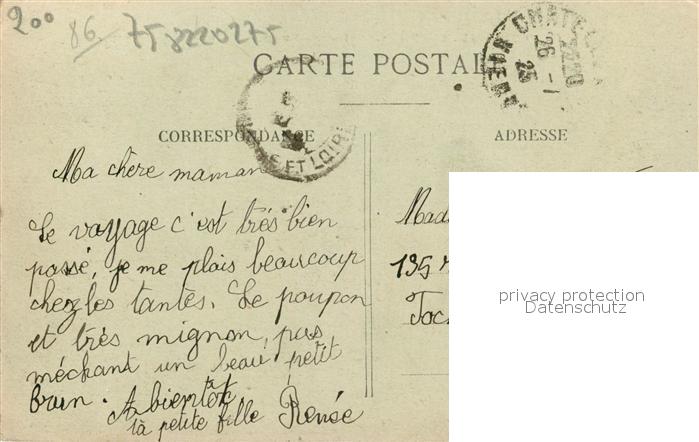 200
86
75 8220275
CARTE POSTAL
CHATEL
26 - 1
25
VIENNE
CORRESPONDANCE
ET LOIR
ADRESSE
Ma chère maman
Le voyage c'est trés bien
passé, je me plais beaucoup
chez les tantes. Le poupon
et très mignon, pas
méchant un beau petit
brun. A bientôt
ta petite fille Renée
Mad
135
privacy protection
Datenschutz